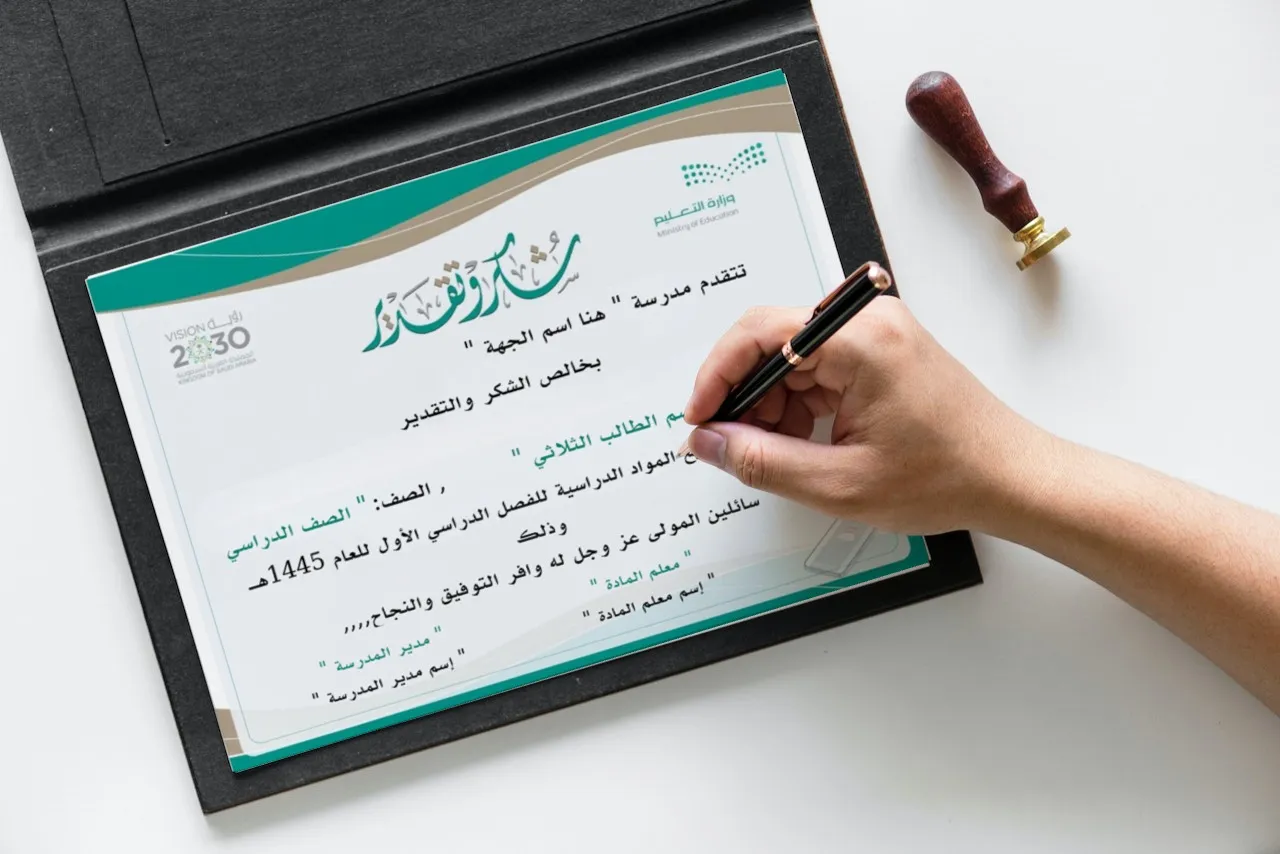 وزارة التعليم
Ministry of Education
رؤية VISION
2030
المملكة العربية السعودية
KINGDOM OF SAUDI ARABIA
شكر وتقدير
تتقدم مدرسة " هنا اسم الجهة "
بخالص الشكر والتقدير
الطالب الثلاثي "
, الصف: " الصف الدراسي
وذلك
المواد الدراسية للفصل الدراسي الأول للعام 1445هـ
سائلين المولى عز وجل له وافر التوفيق والنجاح,,,,
" معلم المادة "
" إسم معلم المادة "
" مدير المدرسة "
" إسم مدير المدرسة "